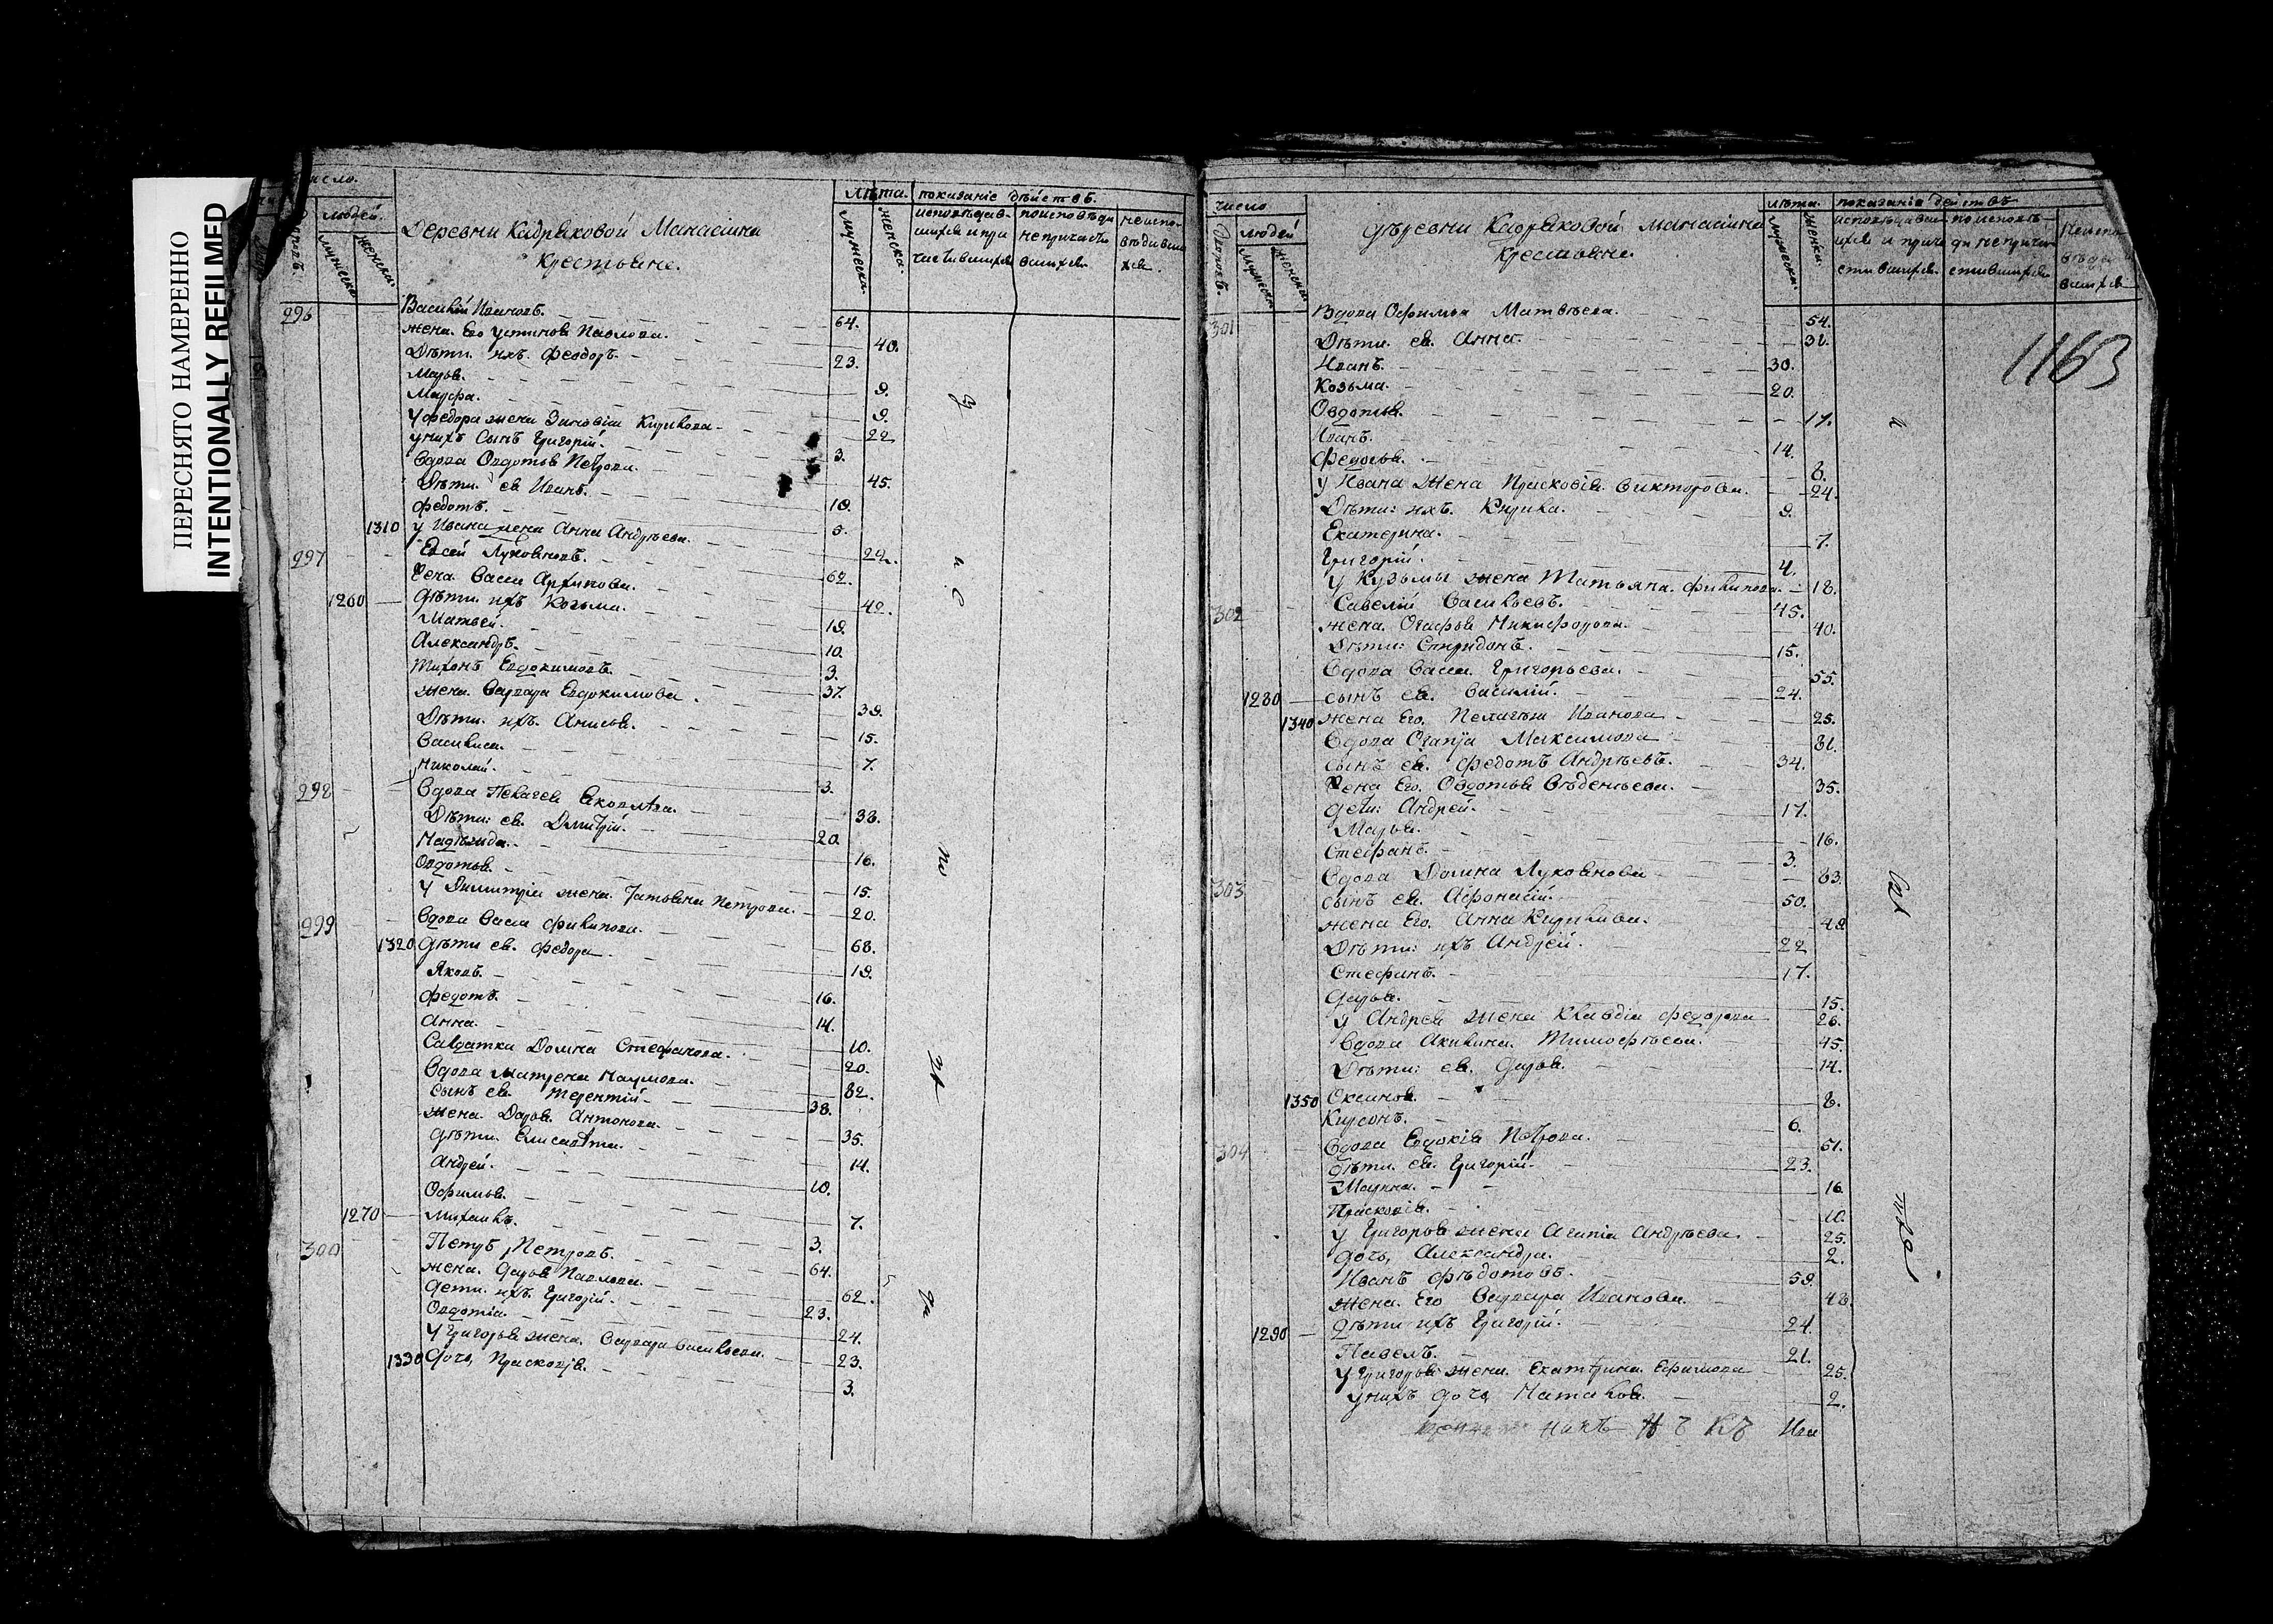 ПЕРЕСНЯТО НАМЕРЕННО
INTENTIONALLY REFILMED
число.
людей.
мужеска.
женска.
Деревни Кадряковой Манасаина
крестьяне.
лѣта.
мужеска.
женска.
показаніе дѣйствъ.
исповѣдав-
шихся и при
частившихся
по исповѣди
непричасти
вшихся
неиспо-
вѣдавши
хся.
296 Василій Ивановъ. 64.
жена Его Устинья Павлова. 40.
Дѣти ихъ. Феодоръ. 23.
Марья. 9.
Марфа. 9.
у Федора жена Зиновія Кирилова 22
у нихъ Сынъ Григорій. 3.
вдова Овдотья Петрова. 45.
Дѣти ея Иванъ. 18.
Федотъ. 5.
1310 у Ивана жена Анна Андрѣева. 22.
297 Евсей Лукояновъ. 62.
жена Васса Архипова. 42.
1260 дѣти ихъ Козьма. 19.
Матвей. 10.
Александръ. 3.
Тихонъ Евдокимовъ. 37.
жена Варвара Евдокимова. 39.
Дѣти ихъ. Анисья. 15.
Василиса. 7.
Николай. 3.
298 Вдова Пелагея Яковлѣва. 38.
Дѣти: ея. Дмитрій. 20.
Надѣжда. 16.
Овдотья. 15.
у Димитрія жена Татьяна Петрова. 20.
299 Вдова Васса Филипова. 68.
1320 дѣти ея. Федора. 19.
Яковъ 16.
Федотъ. 14.
Анна. 10.
Салдатка Домна Стефанова. 20.
Вдова Матрена Наумова. 82.
Сынъ ея. Терентій 38.
жена. Дарья Антонова. 35.
дѣти. Елисавѣта. 14.
Андрей. 10.
Офимья. 7.
1270 Михаилъ. 3.
300 Петръ Петровъ. 64.
жена. Дарья Павлова. 62.
дети. ихъ Григорій. 23.
Овдотія. 24.
у Григорья жена. Варвара Васильева. 23.
1330 дочь Прасковія. 3.
число
людей
мужеска
женска.
Деревни Кадряковой Манасаина
Крестьяне.
лѣта.
мужеска.
женска.
показанія действъ
исповѣдавши
хся и прича
стившихся
по исповѣ-
ди непричи
стившихся
Неиспо
вѣда
вшихся
1163
301 Вдова Офимья Матвѣева. 54.
Дѣти. ея. Анна. 32.
Иванъ. 30.
Козьма. 20.
Овдотья. 17.
Иванъ. 14.
Федосья. 8.
у Ивана жена Прасковія Викторова. 24.
Дѣти: ихъ. Кирила. 9.
Екатерина. 7.
Григорій. 4.
у Кузьмы жена Татьяна Филипова. 18.
302 Савелій Васильевъ. 45.
жена. Огафья Никифорова. 40.
Дѣти: Спиридонъ. 15.
Вдова Васса Григорьева. 55.
1280 сынъ ея. Василій. 24.
1340 жена Его. Пелагѣя Иванова 25.
Вдова Максимова 81.
сынъ ея. Федотъ Андрѣевъ. 34.
жена Его. Овдотья 35.
дети: Андрей. 17.
Марья. 16.
Стефанъ. 3.
303 Вдова Домна Лукоянова 83.
сынъ ея. Афонасій. 50.
жена Его. Анна Кирилова. 48
Дѣти: ихъ Андрей. 22
Стефанъ. 17.
Дарья. 15.
у Андрея жена Клавдія Федорова 26.
Вдова Акилина. Тимофѣева. 45.
Дѣти: ея. Дарья. 14.
1350 Оксинья. 8.
Кирсонъ. 6.
304 Вдова Евдокія Петрова. 51.
Дѣти. ея. Григорій. 23.
Марина. 16
Прасковія. 10.
у Григорья жена Агапія Андрѣева. 25.
дочь, Александра. 2.
Иванъ Фѣдотовъ. 59.
жена. Его Варвара Иванова. 48.
1290 дѣти ихъ Григорій. 24.
Павелъ. 21.
у Григорья жена. Екатѣрина Ефимова 25.
у нихъ дочь Наталья. 2.